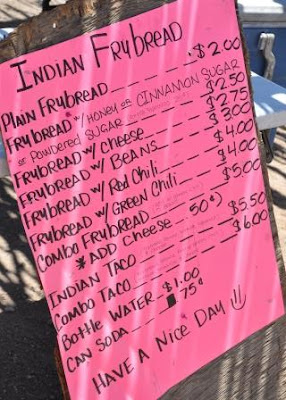 INDIAN FRYBREAD
PLAIN FRYBREAD $2.00
FRYBREAD w/ HONEY OR CINNAMON SUGAR
OR POWDERED SUGAR $2.50
FRYBREAD w/ CHEESE $2.75
FRYBREAD w/ BEANS $3.00
FRYBREAD w/ RED CHILI $4.00
FRYBREAD w/ GREEN CHILI $4.00
COMBO FRYBREAD $5.00
* ADD CHEESE 50¢)
INDIAN TACO $5.50
COMBO TACO $6.00
BOTTLE WATER $1.00
CAN SODA .75¢
HAVE A NICE DAY